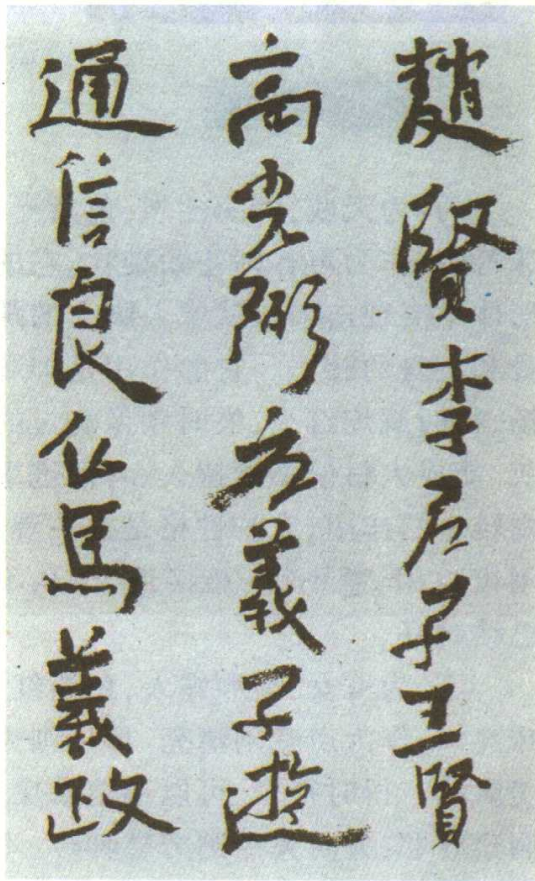 趙賢李君子王賢
高光郍右義子遊
通信良仏馬義政